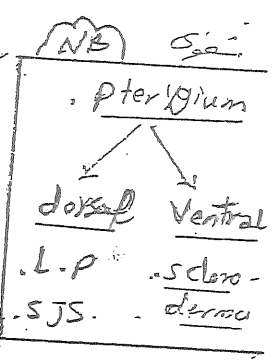 NB
. Pterigium
dorsal Ventral
. L.P . sclero-
. SJS. . derma